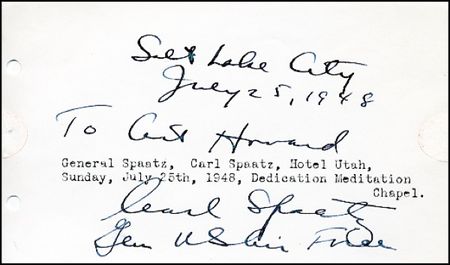 Salt Lake City
July 25, 1948
To Art Howard
General Spaatz, Carl Spaatz, Hotel Utah,
Sunday, July 25th, 1948, Dedication Meditation
Chapel.
Carl Spaatz
Gen US Air Force